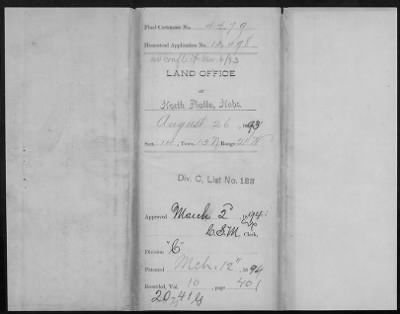 Final Certificate No. 4479
Homestead Application No. 12498
no conflict
LAND OFFICE
at
North Platte, Nebr.
August 26, 1893
Sect. 14, Town. 13 N, Range 21 W
Div. C, List No. 189
Approved March 2, 1894
C.E.M. Clerk,
Division "C"
Patented Mch. 12", 1894
Recorded, Vol. 10, page 401